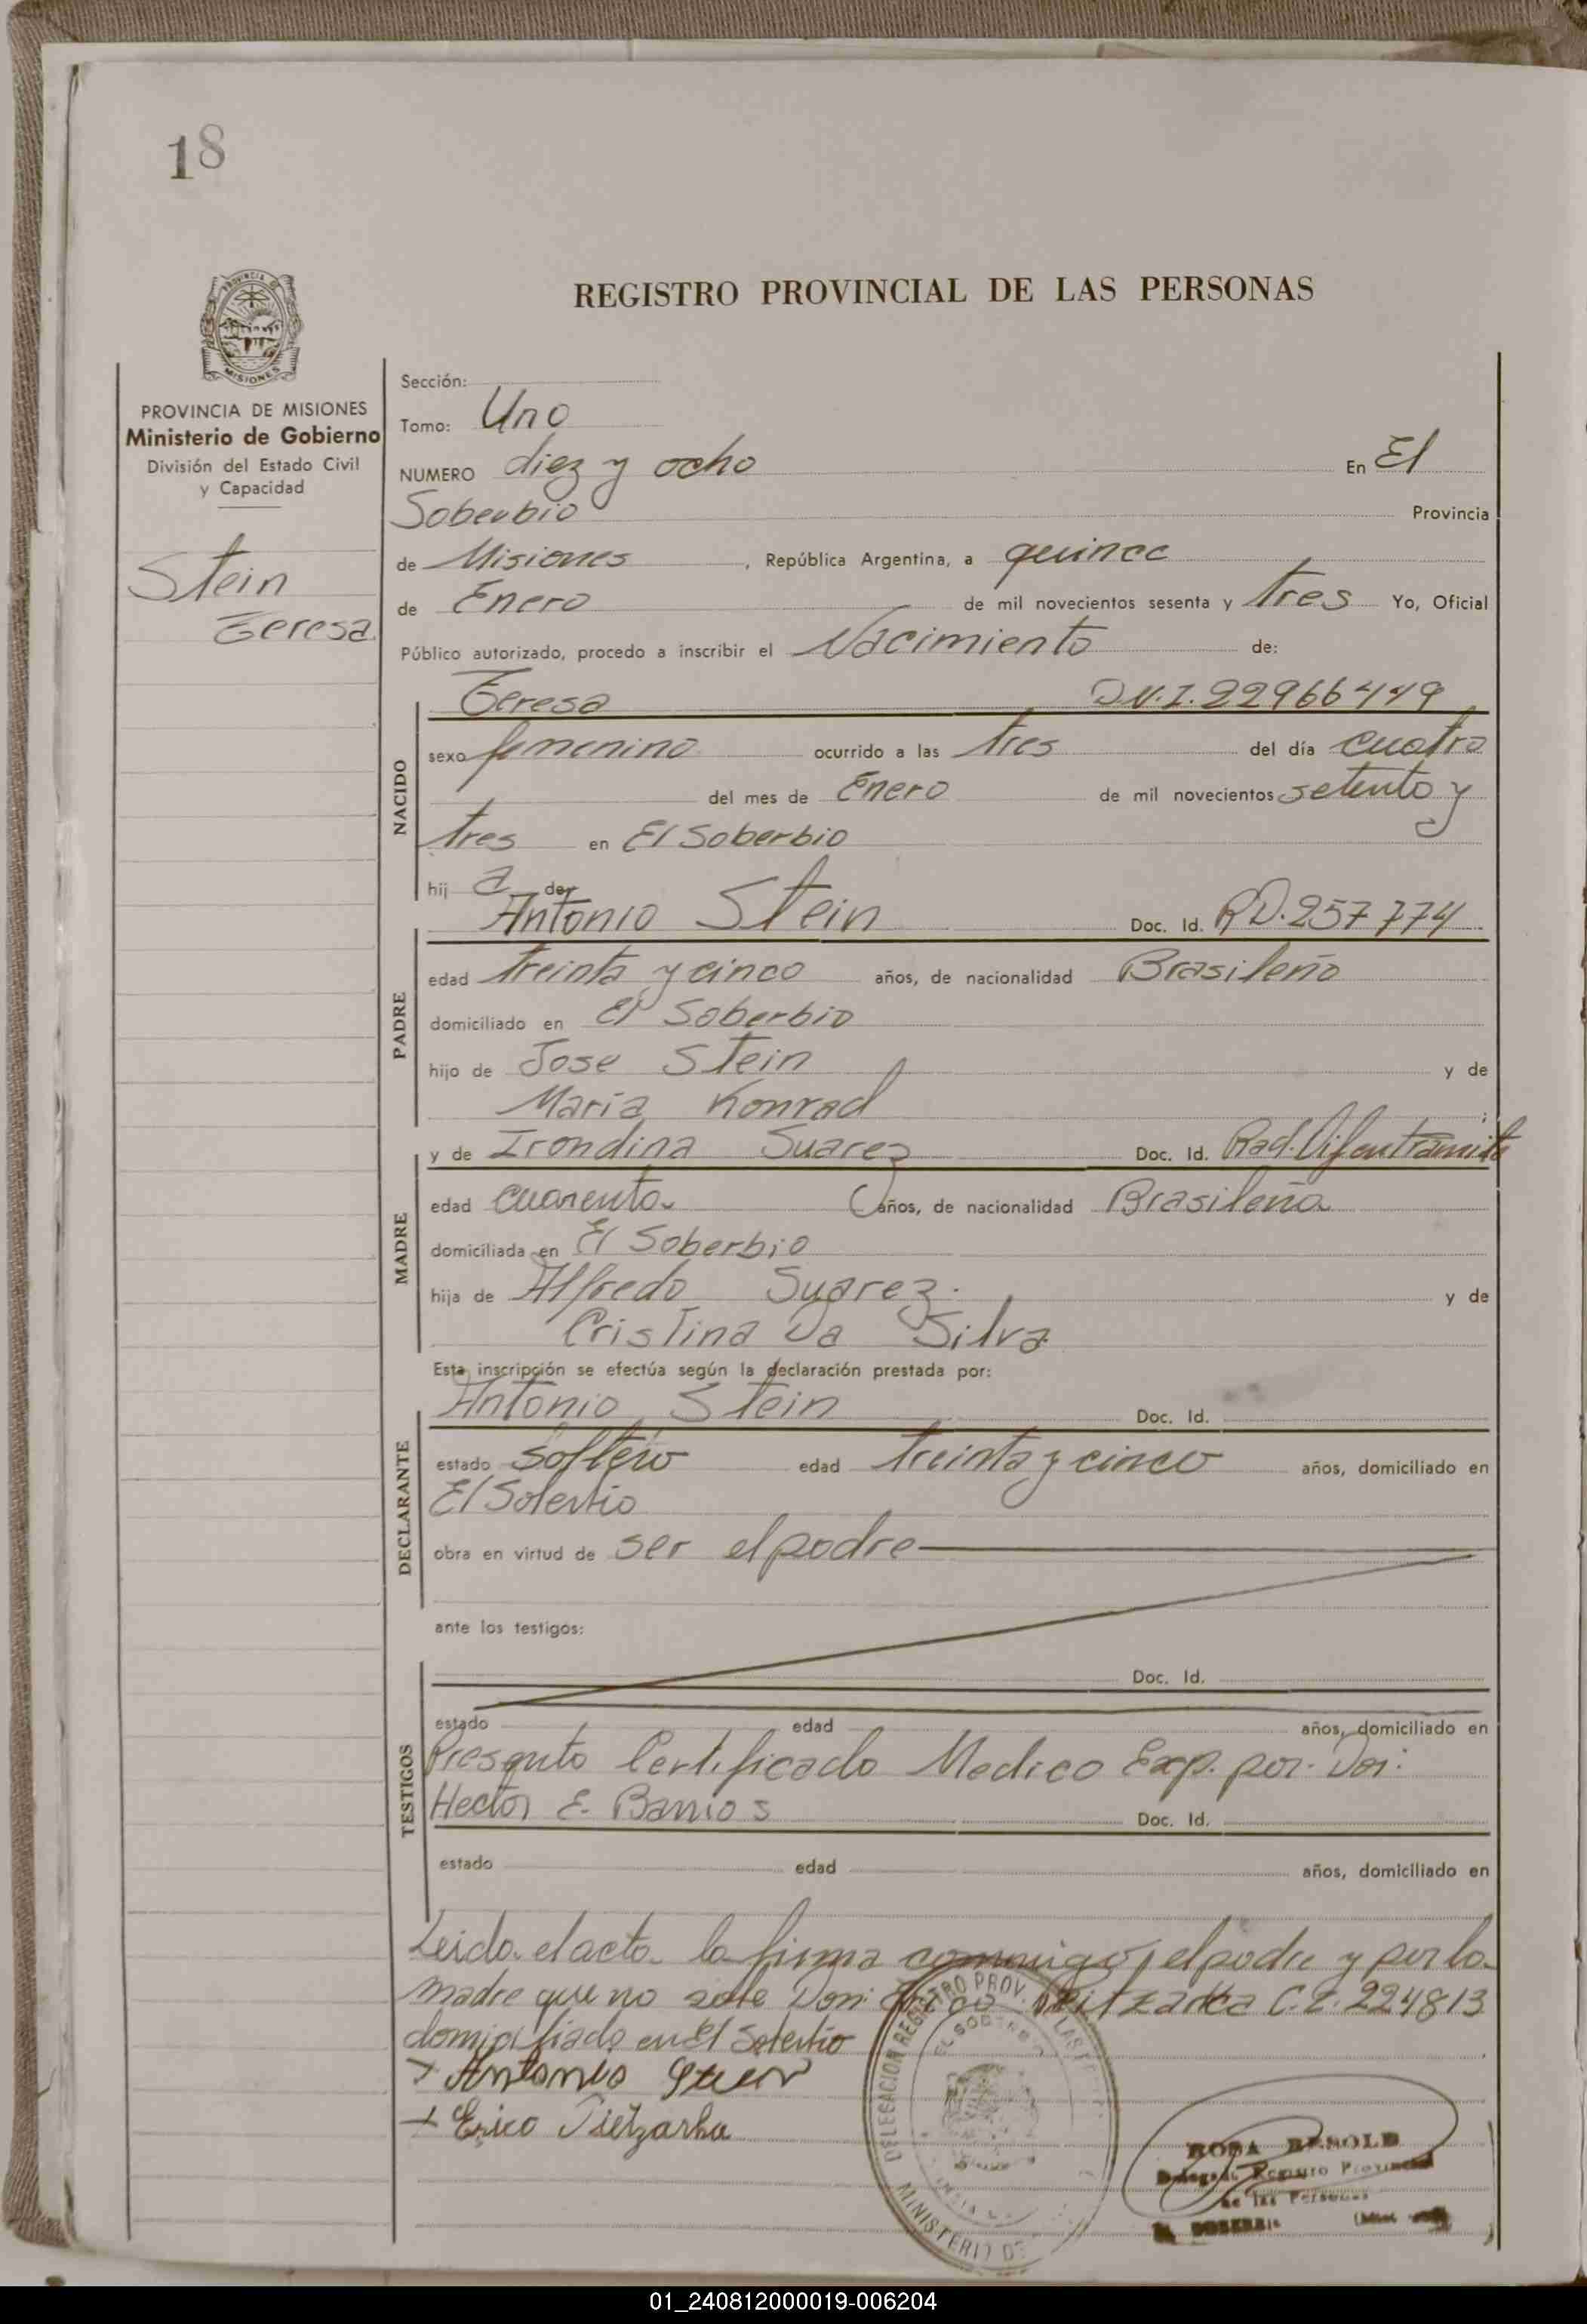 18
REGISTRO PROVINCIAL DE LAS PERSONAS
PROVINCIA DE MISIONES
Ministerio de Gobierno
División del Estado Civil
y Capacidad
Stein
Teresa
Sección:
Tomo: Uno
NUMERO diez y ocho En El
Soberbio Provincia
de Misiones, República Argentina, a quince
de Enero de mil novecientos sesenta y tres Yo, Oficial
Público autorizado, procedo a inscribir el Nacimiento de:
NACIDO
Teresa D.N.I. 22966449
sexo femenino ocurrido a las tres del día cuatro
del mes de Enero de mil novecientos setenta y
tres en El Soberbio
hij a de
PADRE
Antonio Stein Doc. Id. RD. 257774
edad treinta y cinco años, de nacionalidad Brasileño
domiciliado en El Soberbio
hijo de Jose Stein y de
Maria Konrad ;
MADRE
y de Irondina Suarez Doc. Id. Rad.
edad cuarenta años, de nacionalidad Brasileña
domiciliada en El Soberbio
hija de Alfredo Suarez. y de
Cristina Da Silva
Esta inscripción se efectúa según la declaración prestada por:
DECLARANTE
Antonio Stein Doc. Id.
estado soltero edad treinta y cinco años, domiciliado en
El Soberbio
obra en virtud de ser el padre
ante los testigos:
TESTIGOS
Doc. Id.
estado edad años, domiciliado en
Presento Certificado Medico Exp. por
Hector E. Barrios Doc. Id.
estado edad años, domiciliado en
Leida el acta la firma conmigo, el padre y por la
madre que no sabe Don C.I. 224813
domiciliado en El Soberbio
Antonio Stein
Erico Pietzarka
DELEGACION REGISTRO PROV. DE LAS
EL SOBERBIO
MINISTERIO DE
ROSA BESOLD
Delegada Registro Provincial
de las Personas
EL SOBERBIO
01_240812000019-006204